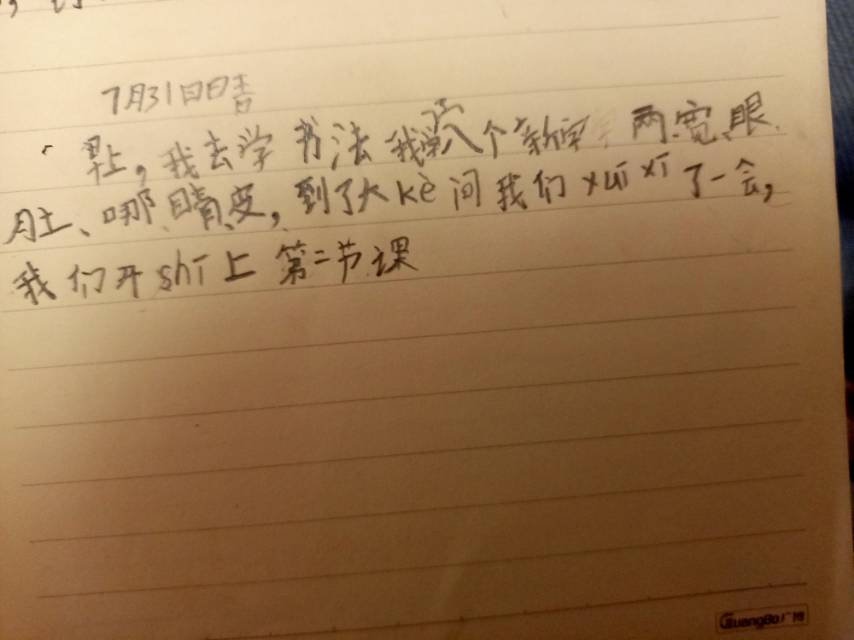 7月31日
早上,我去学书法我学了八个新字 两、宽、眼、
肚、哪、睛、变,到了大kè间我们xuīxī了一会,
我们开shǐ上第二节课
GuangBo广博